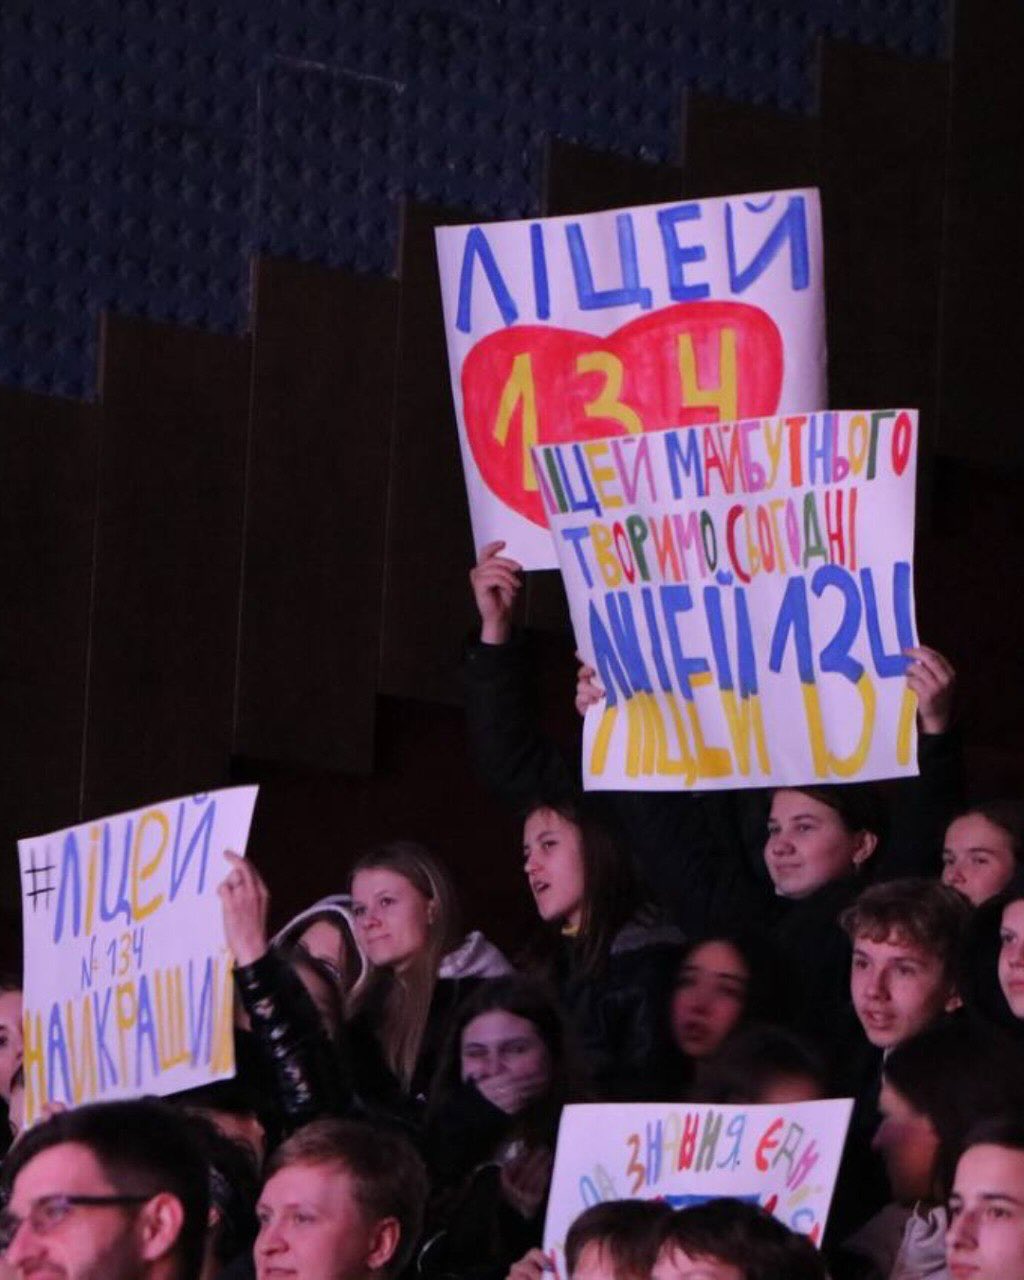 ЛІЦЕЙ
134
ЛІЦЕЙ МАЙБУТНЬОГО
ТВОРИМО СЬОГОДНІ
ЛІЦЕЙ 134
#ЛіЦеЙ
№ 134
НАЙКРАЩИЙ
ЗНАННЯ